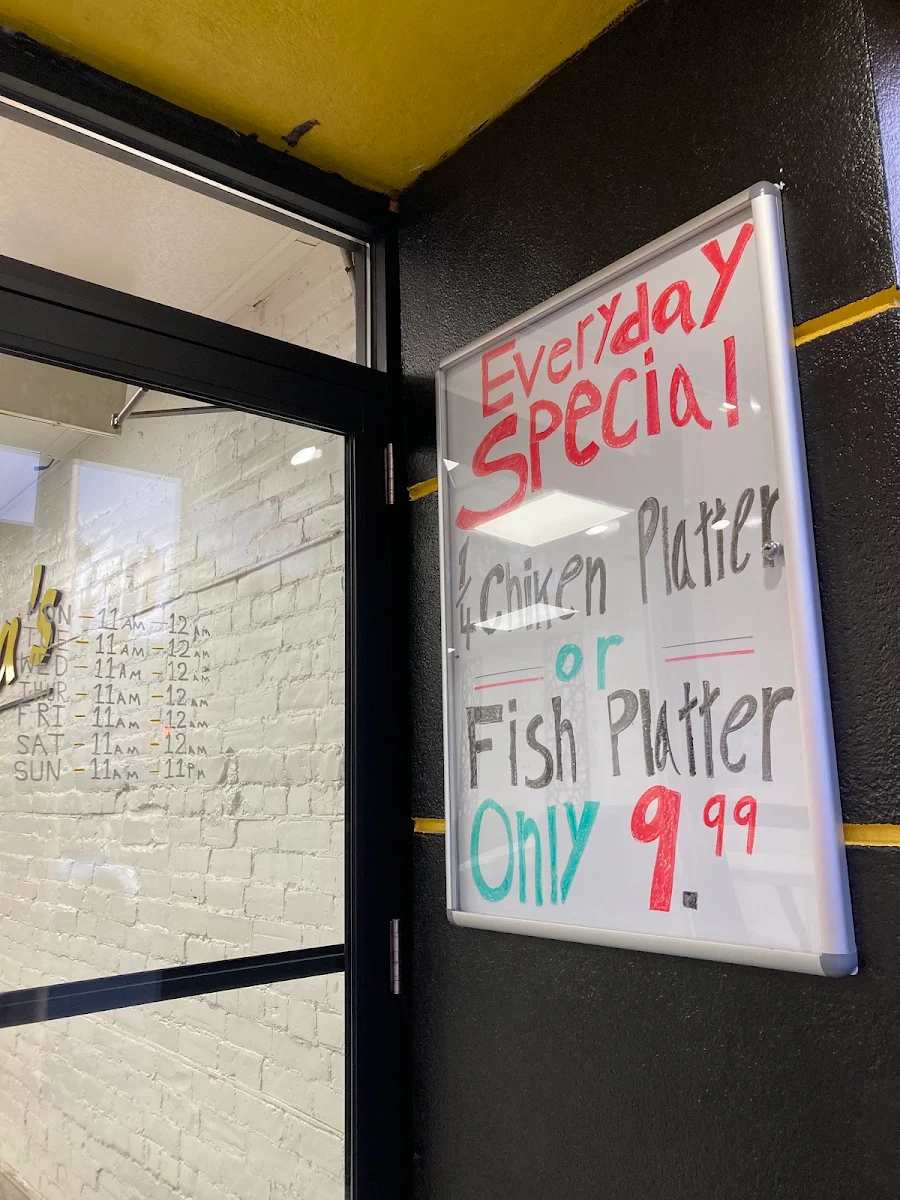 n's
MON - 11AM - 12AM
TUE - 11AM - 12AM
WED - 11AM - 12AM
THUR - 11AM - 12AM
FRI - 11AM - 12AM
SAT - 11AM - 12AM
SUN - 11AM - 11PM
Everyday
Special
1/4 Chiken Platter
or
Fish Platter
Only 9.99